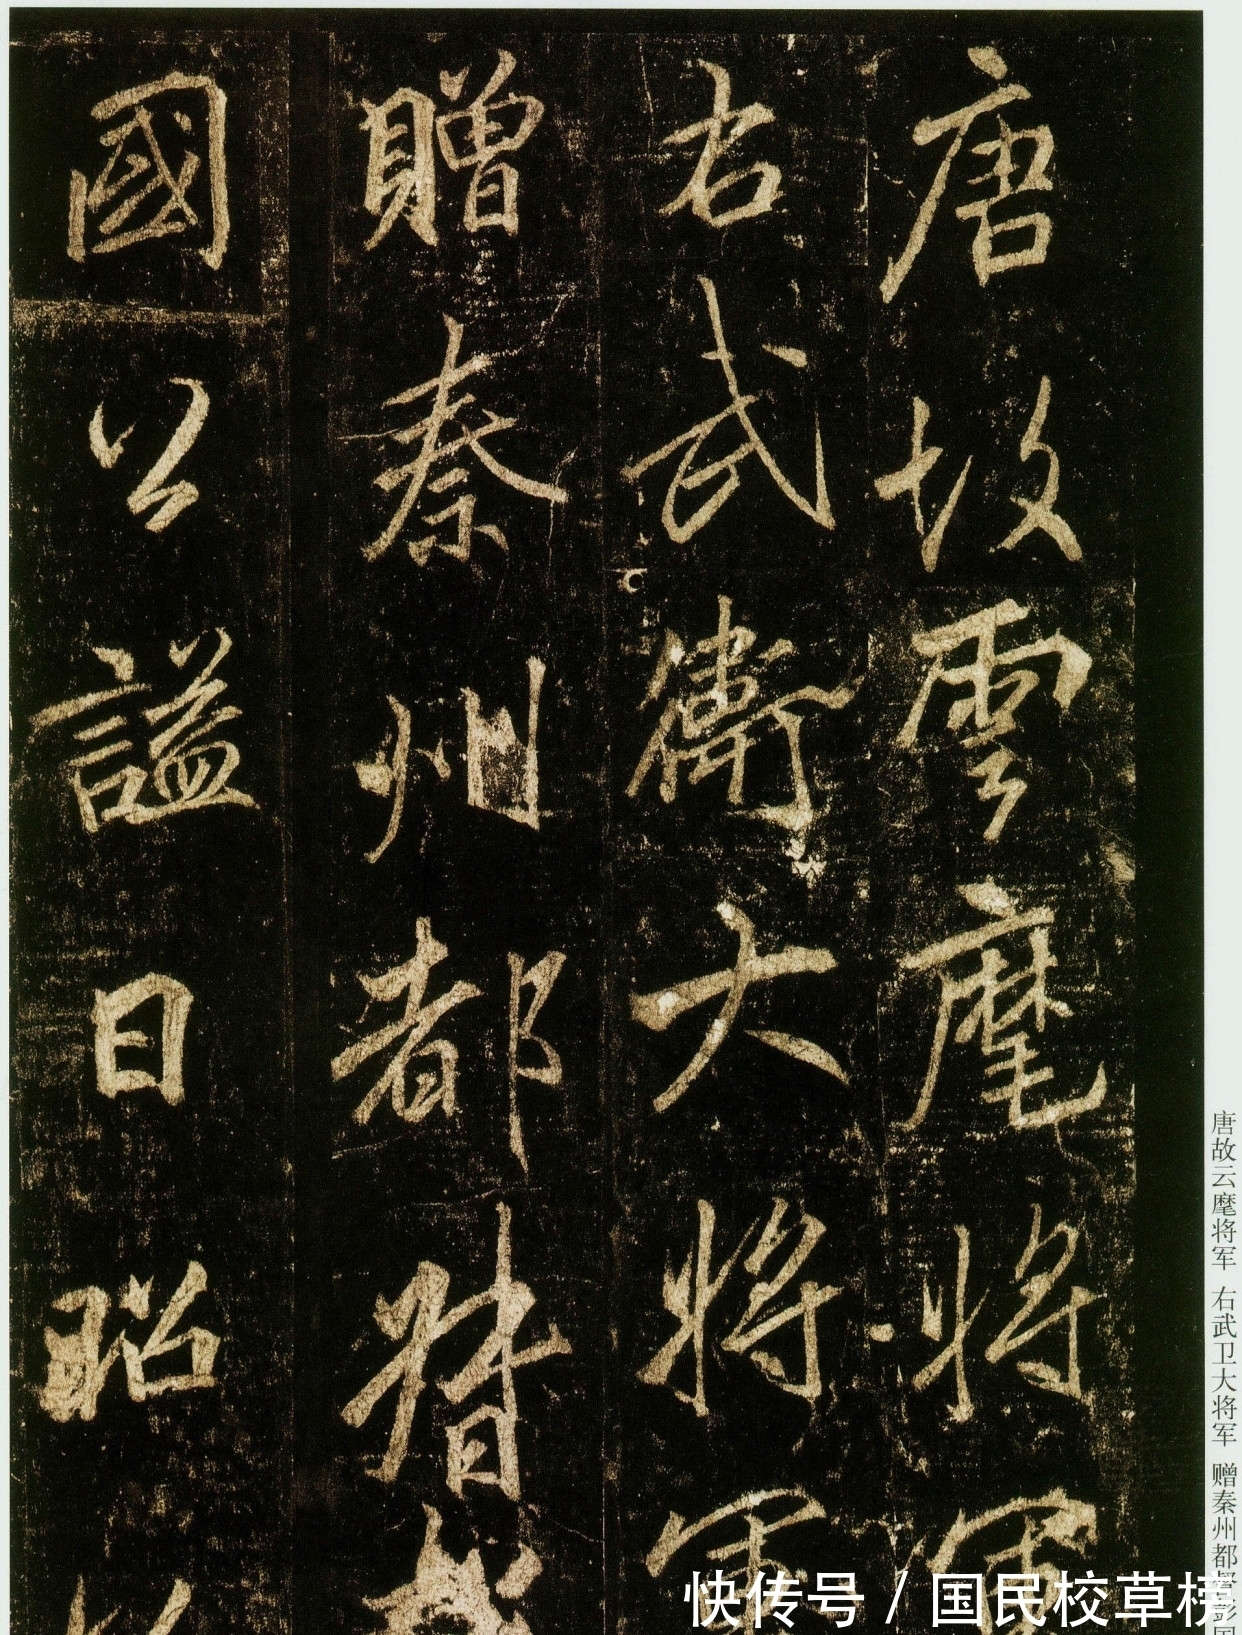 唐故雲麾將軍
右武衛大將軍
贈秦州都督
國公謚曰昭
唐故云麾将军 右武卫大将军 赠秦州都督彭国
快传号 / 国民校草榜